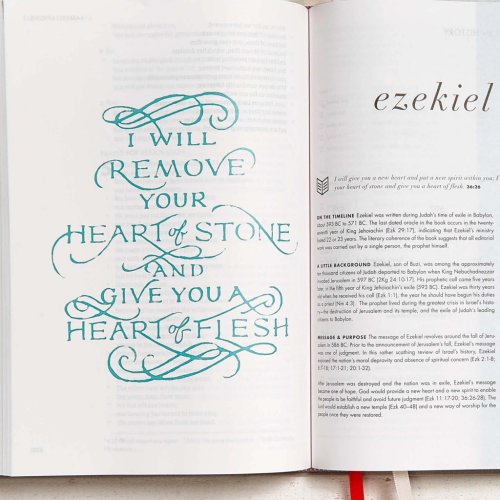 I WILL
REMOVE
YOUR
HEART of STONE
AND
GIVE YOU A
HEART of FLESH
ezekiel
I will give you a new heart and put a new spirit within you; I
your heart of stone and give you a heart of flesh. 36:26
ON THE TIMELINE Ezekiel was written during Judah's time of exile in Babylon,
about 593 BC to 571 BC. The last dated oracle in the book occurs in the twenty-
seventh year of King Jehoiachin (Ezk 29:17), indicating that Ezekiel's ministry
lasted 22 or 23 years. The literary coherence of the book suggests that all editorial
work was carried out by a single person, the prophet himself.
A LITTLE BACKGROUND Ezekiel, son of Buzi, was among the approximately
ten thousand citizens of Judah deported to Babylon when King Nebuchadnezzar
invaded Jerusalem in 597 BC (2Kg 24:10-17). His prophetic call came five years
later, in the fifth year of King Jehoiachin's exile (593 BC). Ezekiel was thirty years
old when he received his call (Ezk 1:1), the year he should have begun his duties
as priest (Nm 4:3). The prophet lived during the greatest crisis in Israel's his-
tory—the destruction of Jerusalem and its temple, and the exile of Judah's leading
citizens to Babylon.
MESSAGE & PURPOSE The message of Ezekiel revolves around the fall of Jeru-
salem in 586 BC. Prior to the announcement of Jerusalem's fall, Ezekiel's message
was one of judgment. In this rather scathing review of Israel's history, Ezekiel
exposed the nation's moral depravity and absence of spiritual concern (Ezk 2:1-8;
8:7-18; 17:1-21; 20:1-32).
After Jerusalem was destroyed and the nation was in exile, Ezekiel's message
became one of hope. God would provide a new heart and a new spirit to enable
the people to be faithful and avoid future judgment (Ezk 11:17-20; 36:26-28). The
Lord would establish a new temple (Ezk 40–48) and a new way of worship for the
people once they were restored.